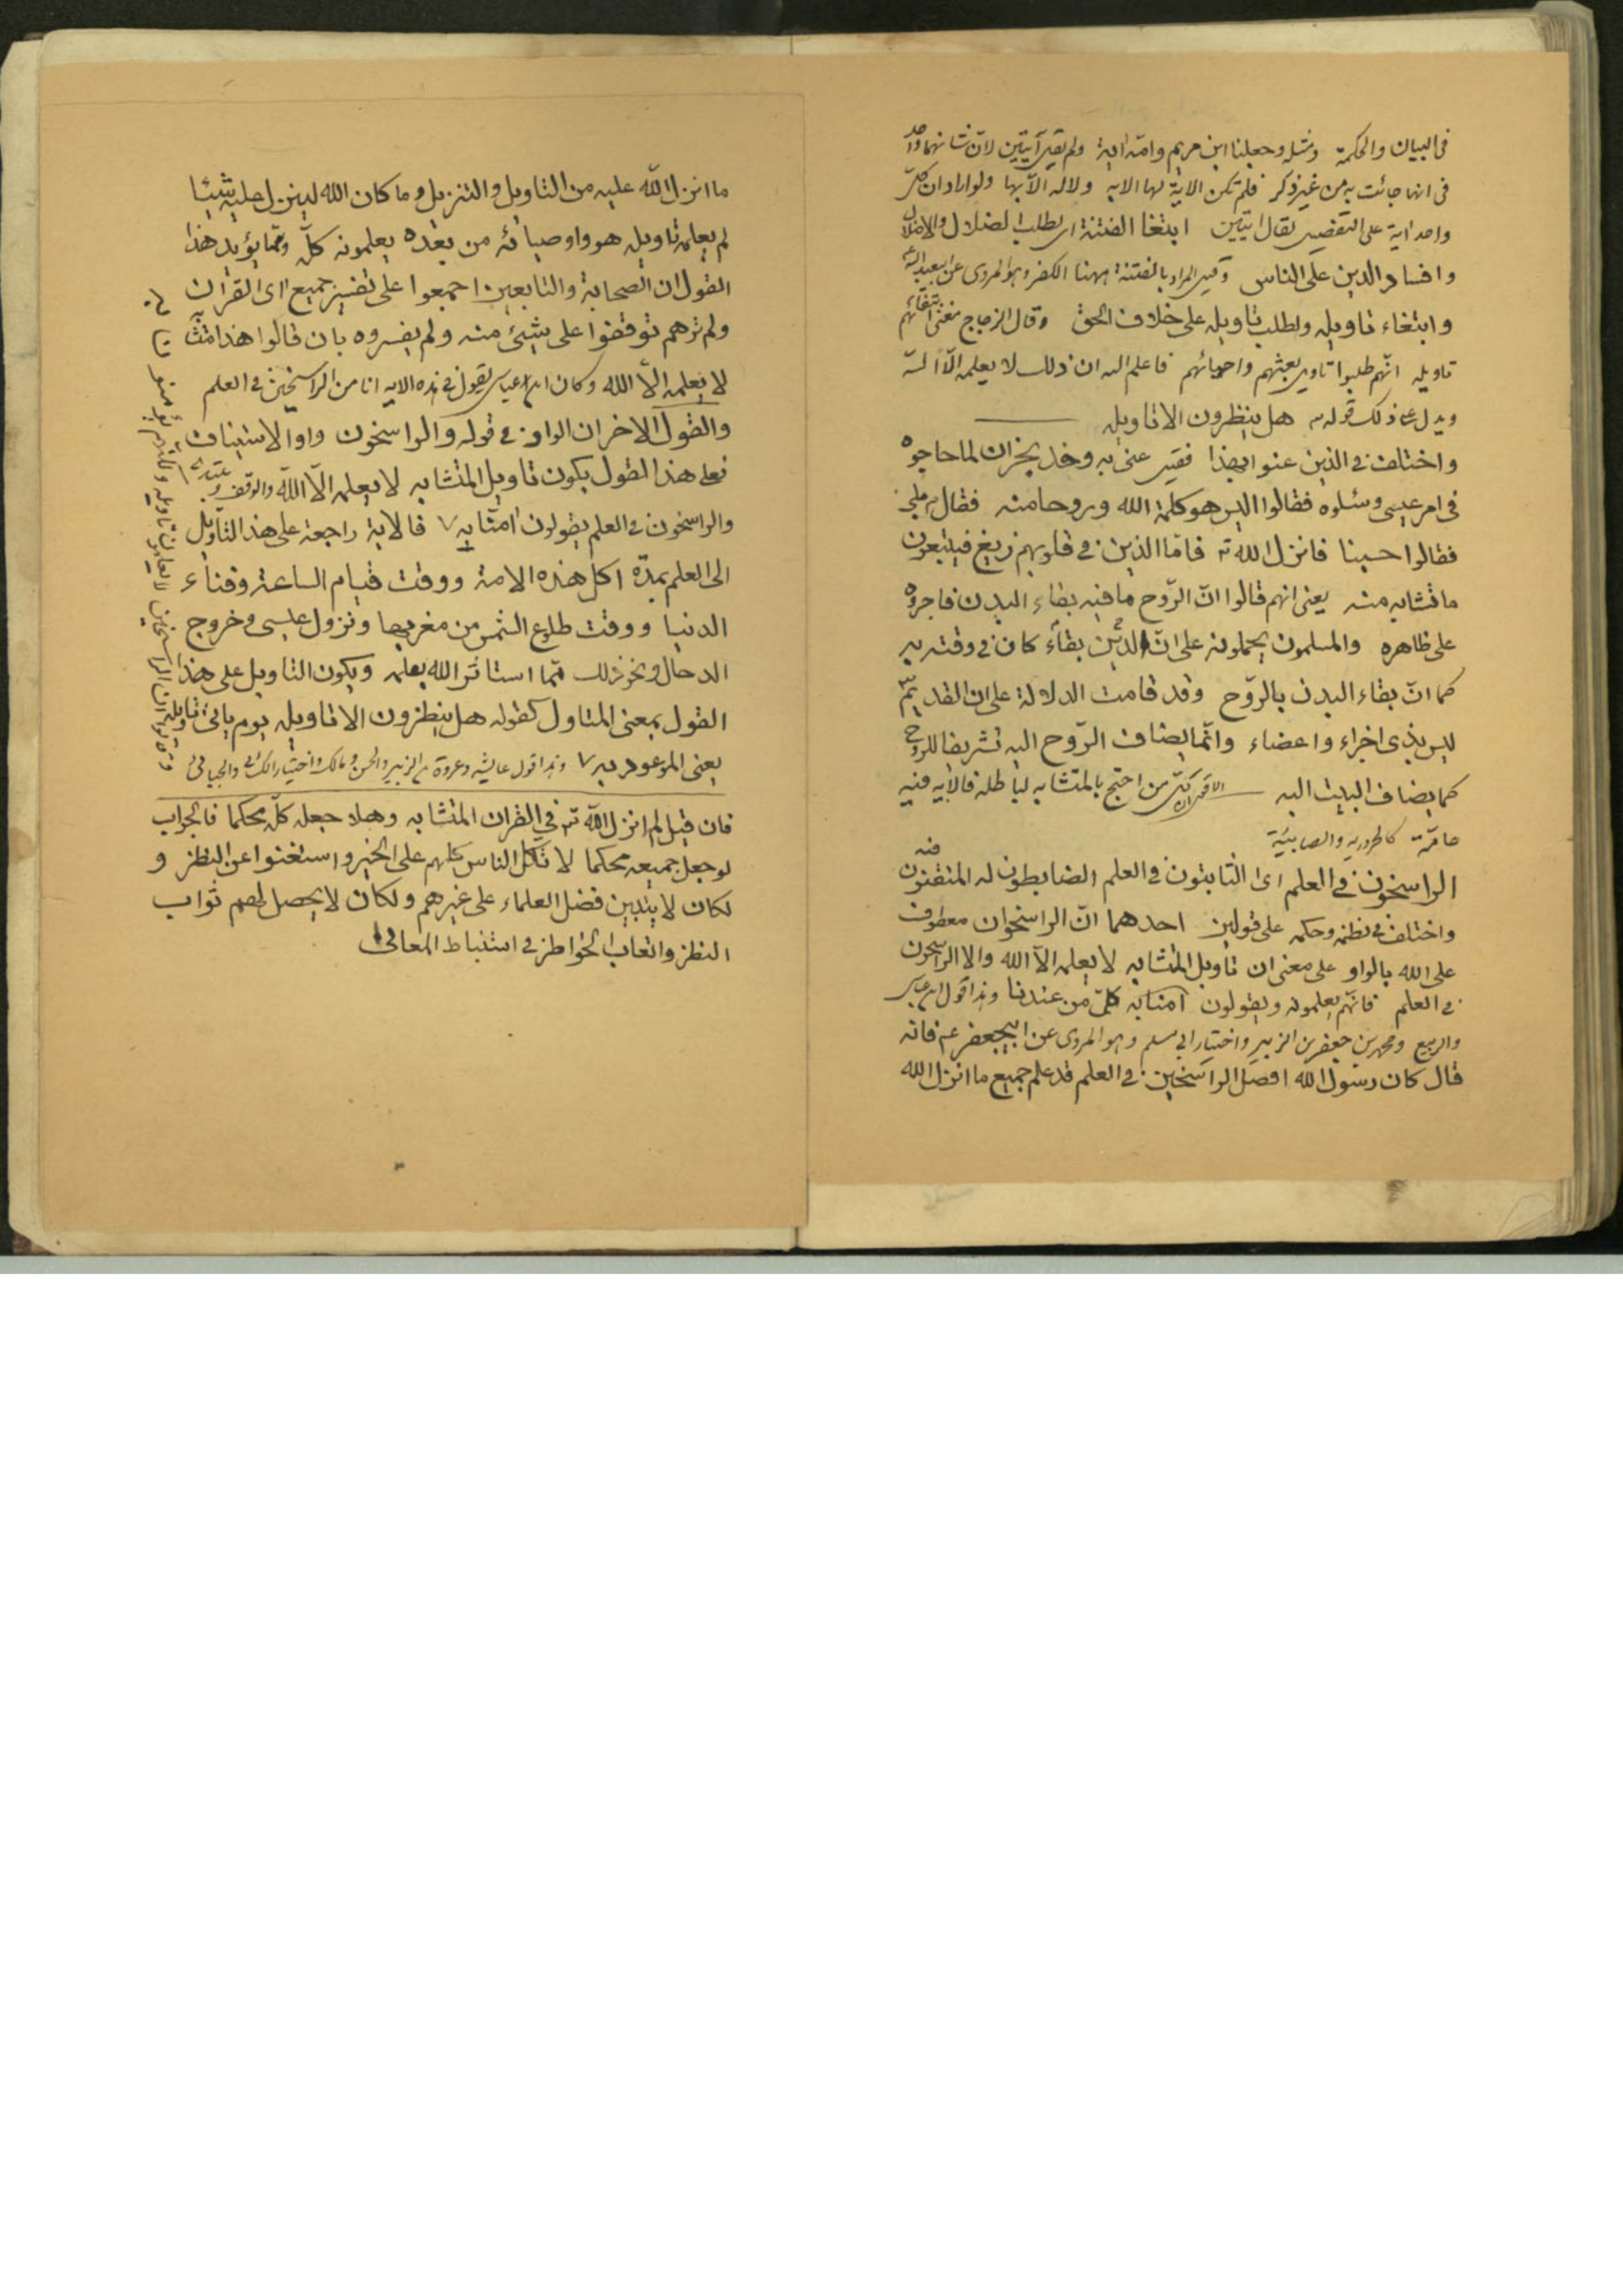 فى البيان والحكمة ومثله وجعلنا ابن مريم وامه اية ولم يقل آيتين لان شانهما واحد
فى انها جائت به من غير ذكر فلم تكن الاية لها الا به ولا له الا بها ولو اراد ان كل
واحد اية على التفصيل لقال ايتين ابتغا الفتنة اى لطلب الضلال والاضلال
وافساد الدين على الناس وقيل المراد بالفتنة ههنا الكفر وهو المروى عن ابيعبد الله ع
وابتغاء تاويله ولطلب تاويله على خلاف الحق وقال الزجاج معنى ابتغائهم
تاويله انهم طلبوا تاويل بعثهم واحيائهم فاعلم الله ان ذلك لا يعلمه الا الله
ويدل على ذلك قوله هل ينظرون الا تاويله
واختلف فى الذين عنوا بهذا فقيل عنى به وفد نجران لما حاجوه
فى امر عيسى وسئلوه فقالوا اليس هو كلمة الله وروحا منه فقال بلى
فقالوا حسبنا فانزل الله فاما الذين فى قلوبهم زيغ فيتبعون
ما تشابه منه يعنى انهم قالوا ان الروح ما فيه بقاء البدن فاجروه
على ظاهره والمسلمون يحملونه على ان الدين بقاء كان فى وقته به
كما ان بقاء البدن بالروح وقد قامت الدلالة على ان القديم
ليس بذى اجزاء واعضاء وانما يضاف الروح اليه تشريفا للروح
كما يضاف البيت اليه من احتج بالمتشابه لباطله فالايه فيه
عامة كالحرورية والصابئية
الراسخون فى العلم اى الثابتون فى العلم الضابطون له المتقنون فيه
واختلف فى نظمه وحكمه على قولين احدهما ان الراسخون معطوف
على الله بالواو على معنى ان تاويل المتشابه لا يعلمه الا الله والا الراسخون
فى العلم فانهم يعلمونه ويقولون امنا به كل من عندنا وهذا قول ابن عباس
والربيع ومحمد بن جعفر بن الزبير واختيار ابى مسلم وهو المروى عن ابيجعفر ع فانه
قال كان رسول الله افضل الراسخين فى العلم قد علم جميع ما انزل الله
ما انزل الله عليه من التاويل والتنزيل وما كان الله لينزل عليه شيئا
لم يعلمه تاويله هو واوصيائه من بعده يعلمونه كله ومما يؤيد هذا
القول ان الصحابة والتابعين اجمعوا على تفسير جميع اى القران
ولم نرهم توقفوا على شيئ منه ولم يفسروه بان قالوا هذا متشابه
لا يعلمه الا الله وكان ابن عباس يقول فى هذه الايه انا من الراسخين فى العلم
والقول الاخر ان الواو فى قوله والراسخون واو الاستيناف
فعلى هذا القول يكون تاويل المتشابه لا يعلمه الا الله والوقف ويبتدء
والراسخون فى العلم يقولون امنا به فالاية راجعة على هذا التاويل
الى العلم بمدة اكل هذه الامة ووقت قيام الساعة وفناء
الدنيا ووقت طلوع الشمس من مغربها ونزول عيسى وخروج
الدجال ونحو ذلك مما استاثر الله بعلمه ويكون التاويل على هذا
القول بمعنى المتاول كقوله هل ينظرون الا تاويله يوم ياتى تاويله
يعنى الموعود به وهذا قول عايشه وعروة بن الزبير والحسن ومالك واختيار الكسائى والجبائى
فان قيل لم انزل الله فى القران المتشابه وهلا جعله كله محكما فالجواب
لو جعل جميعه محكما لاتكل الناس كلهم على الخبر واستغنوا عن النظر و
لكان لا يتبين فضل العلماء على غيرهم ولكان لا يحصل لهم ثواب
النظر واتعاب الخواطر فى استنباط المعانى